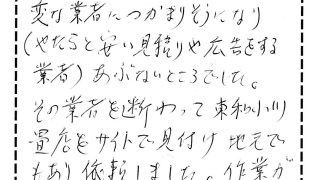 変な業者につかまりそうになり
(やたらと安い見積りや広告をする
業者)あぶないところでした。
その業者を断わって東和小川
畳店をサイトで見付け地元で
もあり依頼しました。作業が